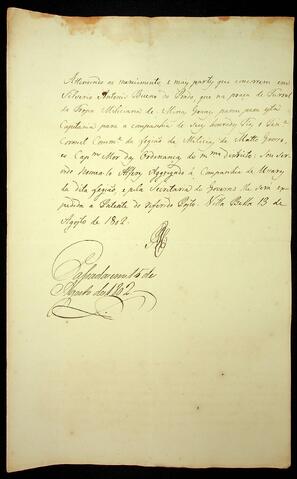 Attendendo ao merecimento e mais partes que concorrem em
Silverio Antonio Bueno do Prado que na praça de Furriel
da Tropa Miliciana de Minas Geraes, passou para esta
Capitania para a companhia de
Coronel Comm.e da Legião de Milicias de Matto Grosso,
e Capm Mor das Ordenanças do mmo districto: Sou ser-
vido nomea-lo Alferes Aggregado á Companhia de
da dita Legião, e pela Secretaria do Governo lhe será ex-
pedida a Patente do referido Posto. Villa Bella 13 de
Agosto de 1802.
Passada em 14 de
Agosto de 1802